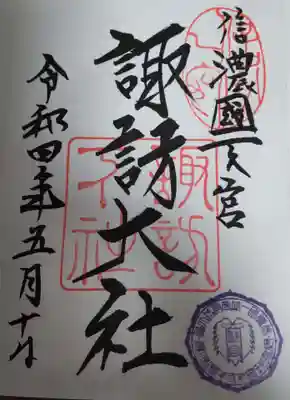 信濃國一之宮
諏訪大社
令和四年五月十日
諏訪大社